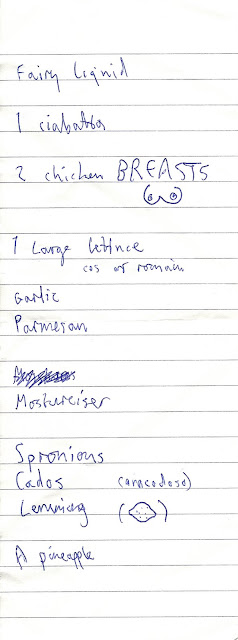 Fairy liquid
1 ciabatta
2 chicken BREASTS
1 Large lettuce
cos or romain
Garlic
Parmesan
Moistureiser
Spronious
Cados (avacodoso)
Lemming ( )
A pineapple